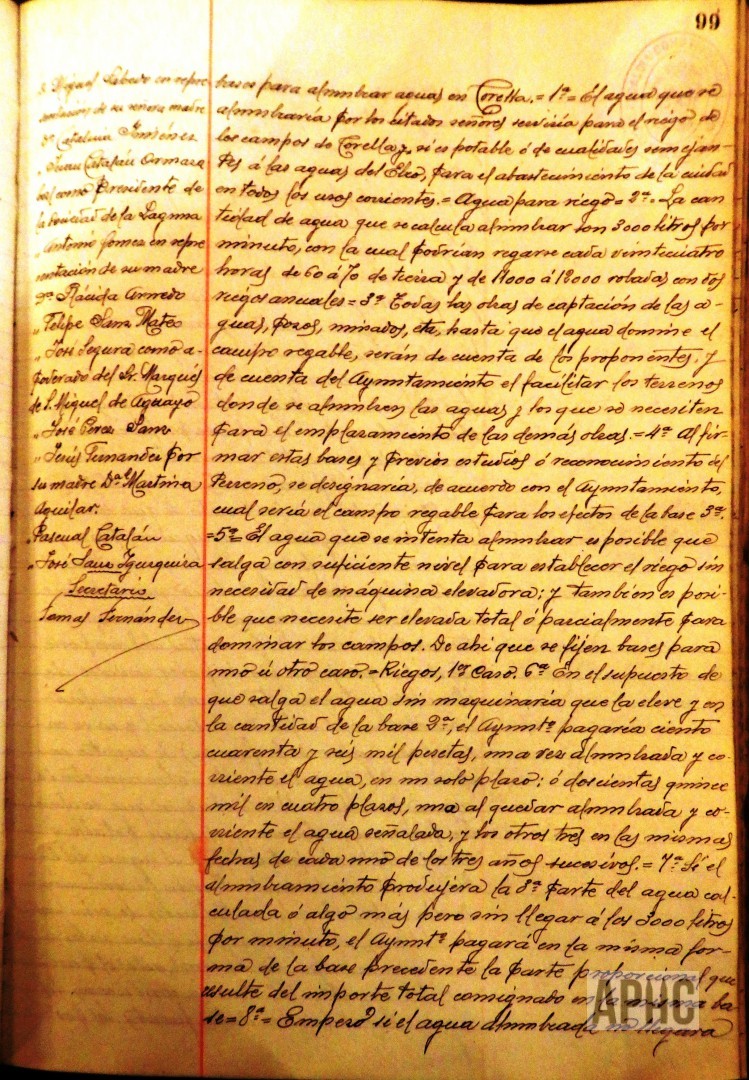 99
D. Miguel Sabedo en repre
sentación de su señora madre
Dª Catalina Jiménez
„ Juan Catalán Ormaza
bal como Presidente de
la Sociedad de la Laguna
„ Antonio Gomez en repre
sentación de su madre
Dª Plácida Arnedo
„ Felipe Sanz Mateo
„ José Segura como a-
poderado del Sr. Marqués
de S. Miguel de Aguayo
„ José Perez Sanz
„ Jesús Fernandez por
su madre Dª Martina
Aguilar.
Pascual Catalán
„ José Sanz Yzurquiza
Secretario
Tomas Fernández
bases para alumbrar aguas en Corella.= 1ª= El agua que se
alumbraría por los citados señores serviría para el riego de
los campos de Corella y, si es potable ó de cualidades semejan-
tes á las aguas del Ebro, para el abastecimiento de la ciudad
en todos los usos corrientes.= Agua para riego= 2ª= La can
tidad de agua que se calcula alumbrar son 3000 litros por
minuto, con la cual podrían regarse cada veinticuatro
horas de 60 á 70 de tierra y de 11000 á 12000 robadas con dos
riegos anuales= 3ª Todas las obras de captación de las a-
guas, pozos, minados, etc, hasta que el agua domine el
campo regable, serán de cuenta de los proponentes; y
de cuenta del Ayuntamiento el facilitar los terrenos
donde se alumbren las aguas y los que se necesiten
para el emplazamiento de las demás obras.= 4ª Al fir-
mar estas bases y previos estudios ó reconocimiento del
terreno, se designaría, de acuerdo con el Ayuntamiento,
cual sería el campo regable para los efectos de la base 3ª.
=5ª= El agua que se intenta alumbrar es posible que
salga con suficiente nivel para establecer el riego sin
necesidad de máquina elevadora; y también es posi-
ble que necesite ser elevada total ó parcialmente para
dominar los campos. De ahi que se fijen bases para
uno ú otro caso.= Riegos, 1er Caso. 6ª En el supuesto de
que salga el agua sin maquinaria que la eleve y en
la cantidad de la base 2ª, el Ayuntº pagaría ciento
cuarenta y seis mil pesetas, una vez alumbrada y co-
rriente el agua, en un solo plazo; ó doscientas quince
mil en cuatro plazos, una al quedar alumbrada y co-
rriente el agua señalada, y los otros tres en las mismas
fechas de cada uno de los tres años sucesivos.= 7ª Si el
alumbramiento produjera la 3ª parte del agua cal-
culada ó algo más pero sin llegar á los 3000 litros
por minuto, el Ayuntº pagará en la misma for-
ma de la base precedente la parte proporcional que
resulte del importe total consignado en la misma ba
se= 8ª= Empero si el agua alumbrada no llegara
APHC